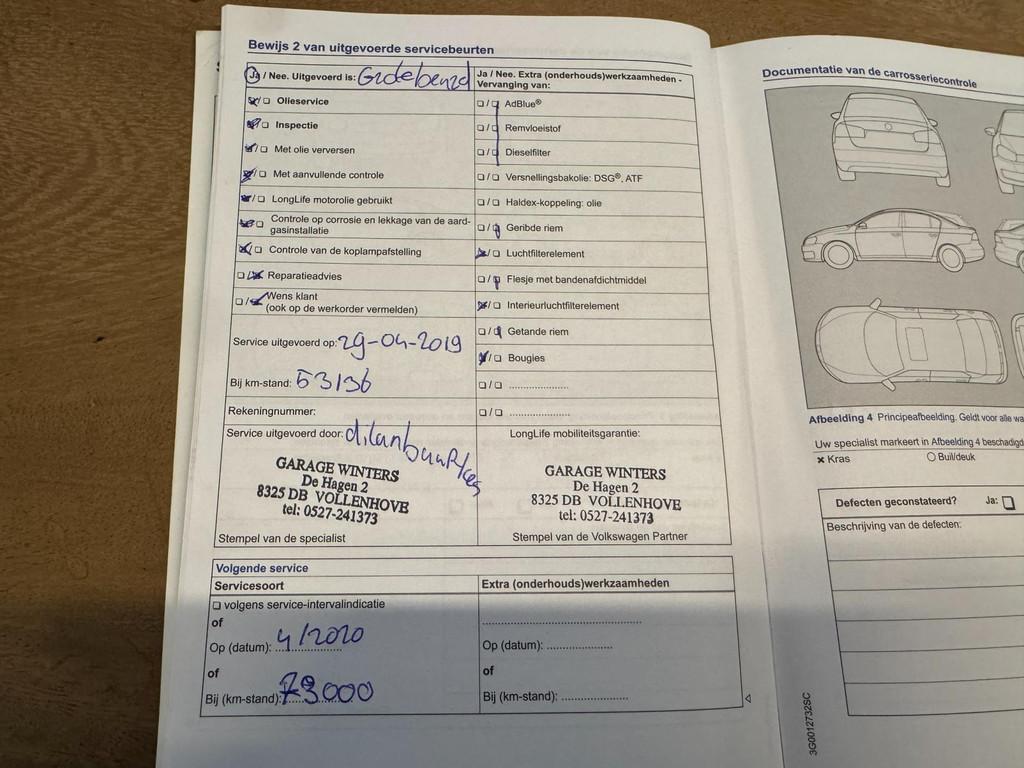 Bewijs 2 van uitgevoerde servicebeurten
Ja / Nee. Uitgevoerd is:
Olieservice
Inspectie
Met olie verversen
Met aanvullende controle
LongLife motorolie gebruikt
Controle op corrosie en lekkage van de aard-
gasinstallatie
Controle van de koplampafstelling
Reparatieadvies
Wens klant
(ook op de werkorder vermelden)
Service uitgevoerd op: 29-04-2019
Bij km-stand: 53136
Rekeningnummer:
Service uitgevoerd door:
GARAGE WINTERS
De Hagen 2
8325 DB VOLLENHOVE
tel: 0527-241373
Stempel van de specialist
Ja / Nee. Extra (onderhouds)werkzaamheden -
Vervanging van:
AdBlue®
Remvloeistof
Dieselfilter
Versnellingsbakolie: DSG®, ATF
Haldex-koppeling: olie
Geribde riem
Luchtfilterelement
Flesje met bandenafdichtmiddel
Interieurluchtfilterelement
Getande riem
Bougies
LongLife mobiliteitsgarantie:
GARAGE WINTERS
De Hagen 2
8325 DB VOLLENHOVE
tel: 0527-241373
Stempel van de Volkswagen Partner
Volgende service
Servicesoort
volgens service-intervalindicatie
of
Op (datum): 4/2020
of
Bij (km-stand): 73000
Extra (onderhouds)werkzaamheden
Op (datum):
of
Bij (km-stand):
Documentatie van de carrosseriecontrole
Afbeelding 4 Principeafbeelding. Geldt voor alle
Uw specialist markeert in Afbeelding 4
Kras
Buil/deuk
Defecten geconstateerd? Ja:
Beschrijving van de defecten:
3G0012732SC